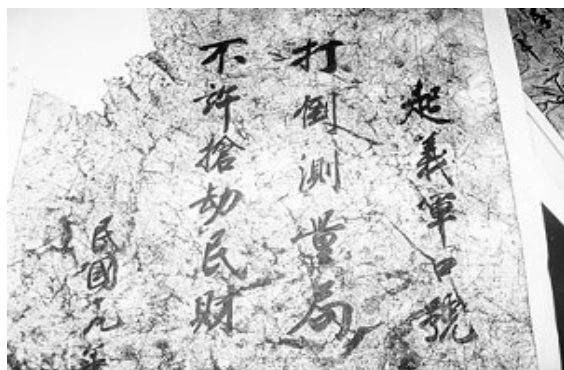 起義軍口號
打倒測量局
不許搶劫民財
民國元年